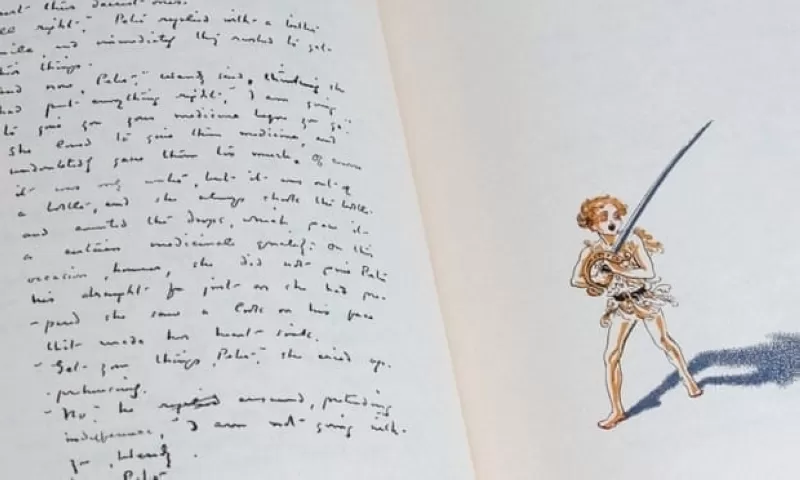 dearest ones.
right," Peter replied with a bitter
smile, and immediately they rushed to get
their things.
"And now, Peter," Wendy said, thinking she
had put everything right, "I am going
to give you your medicine before you go."
She loved to give them medicine, and
undoubtedly gave them too much. Of course
it was only water, but it was out of
a bottle, and she always shook the bottle
and counted the drops, which gave it
a certain medicinal quality. On this
occasion, however, she did not give Peter
his draught for just as she had pre-
-pared she saw a look on his face
that made her heart sink.
"Get your things, Peter," she cried
"No," he answered, pretending
indifference, "I am not going with
you, Wendy."
Peter